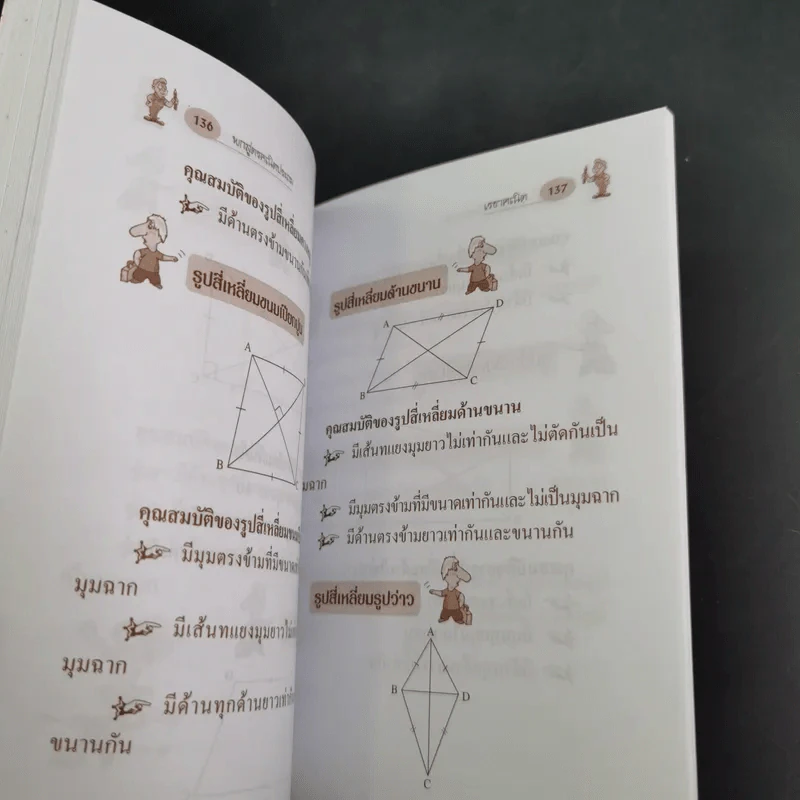 136
พกสูตรคณิตประถม
คุณสมบัติของรูปสี่เหลี่ยม
มีด้านตรงข้ามขนาน
รูปสี่เหลี่ยมขนมเปียกปูน
A
B
C
คุณสมบัติของรูปสี่เหลี่ยมขนม
มีมุมตรงข้ามที่มีขนาด
มุมฉาก
มีเส้นทแยงมุมยาวไม่
มุมฉาก
มีด้านทุกด้านยาวเท่ากัน
ขนานกัน
เรขาคณิต
137
รูปสี่เหลี่ยมด้านขนาน
A
D
B
C
คุณสมบัติของรูปสี่เหลี่ยมด้านขนาน
มีเส้นทแยงมุมยาวไม่เท่ากันและไม่ตัดกันเป็น
มุมฉาก
มีมุมตรงข้ามที่มีขนาดเท่ากันและไม่เป็นมุมฉาก
มีด้านตรงข้ามยาวเท่ากันและขนานกัน
รูปสี่เหลี่ยมรูปว่าว
A
B
D
C